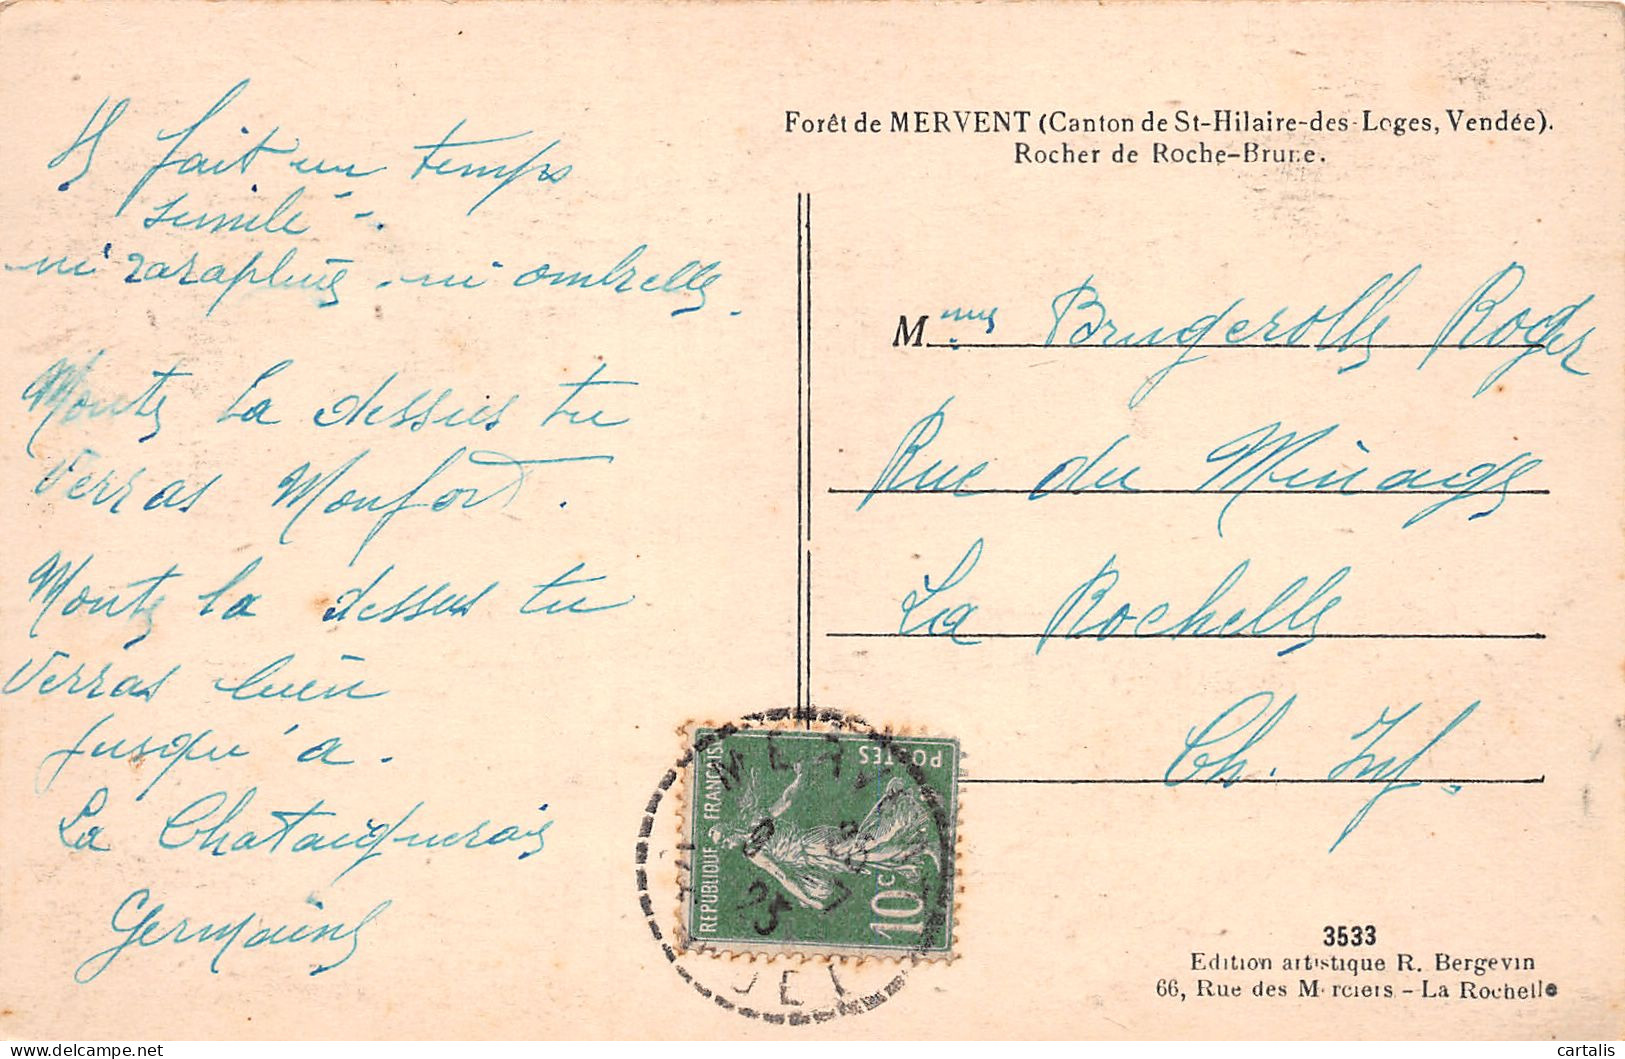 Il fait un temps
simili -.
ni parapluie - ni ombrelle.
Monte la dessus tu
verras Monfort.
Monte la dessus tu
verras bien
jusqu'a.
La Chataigneraie
Germaine
Forêt de MERVENT (Canton de St-Hilaire-des-Loges, Vendée).
Rocher de Roche-Brune.
Mme Brugerolle Roger
Rue du Minage
La Rochelle
Ch. Inf.
REPUBLIQUE FRANÇAISE
POSTES
10c
25
3533
Edition artistique R. Bergevin
66, Rue des Merciers - La Rochelle
cartalis